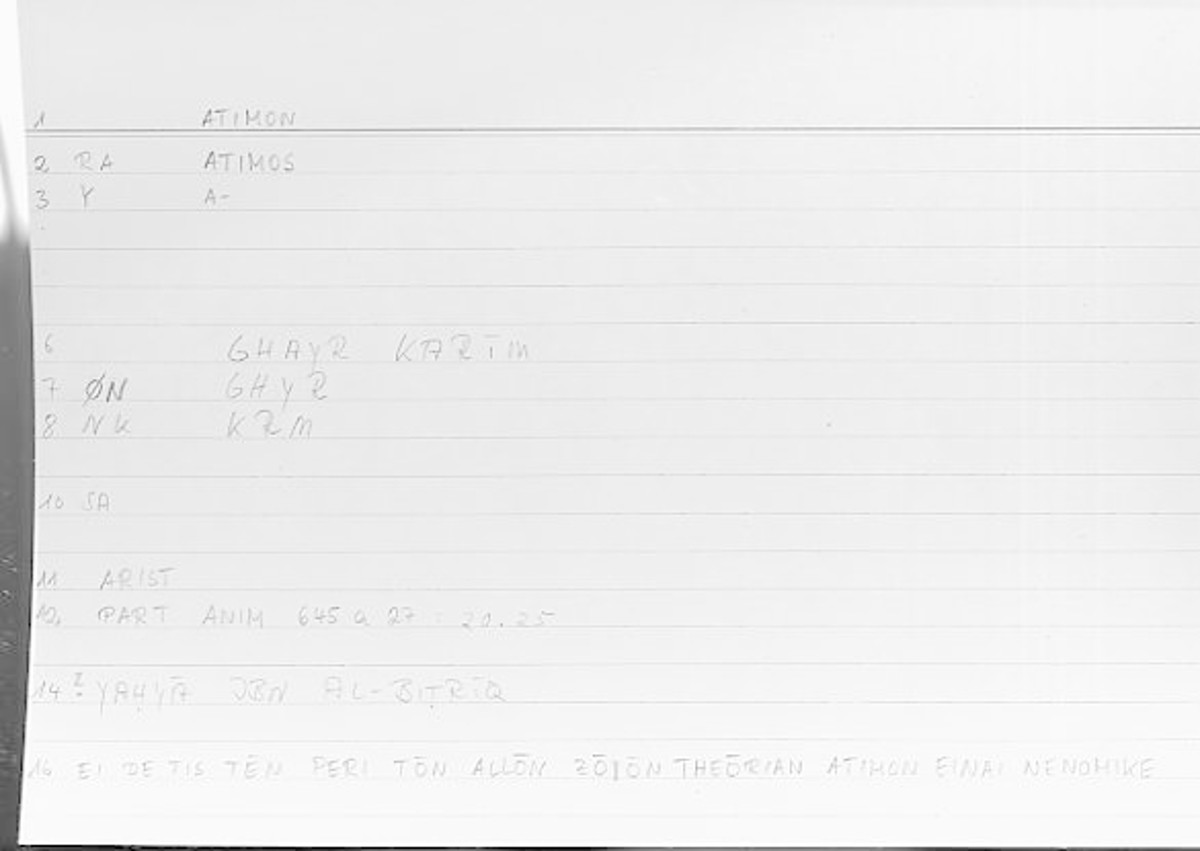 1 ATIMON
2 RA ATIMOS
3 Y A-
6 GHAYR KARĪM
7 ØN GHYR
8 NK KRM
10 SA
11 ARIST
12 PART ANIM 645 a 27 : 20.25
14 ? YAḤYĀ IBN AL-BIṬRĪQ
16 EI DE TIS TĒN PERI TŌN ALLŌN ZŌIŌN THEŌRIAN ATIMON EINAI NENOMIKE